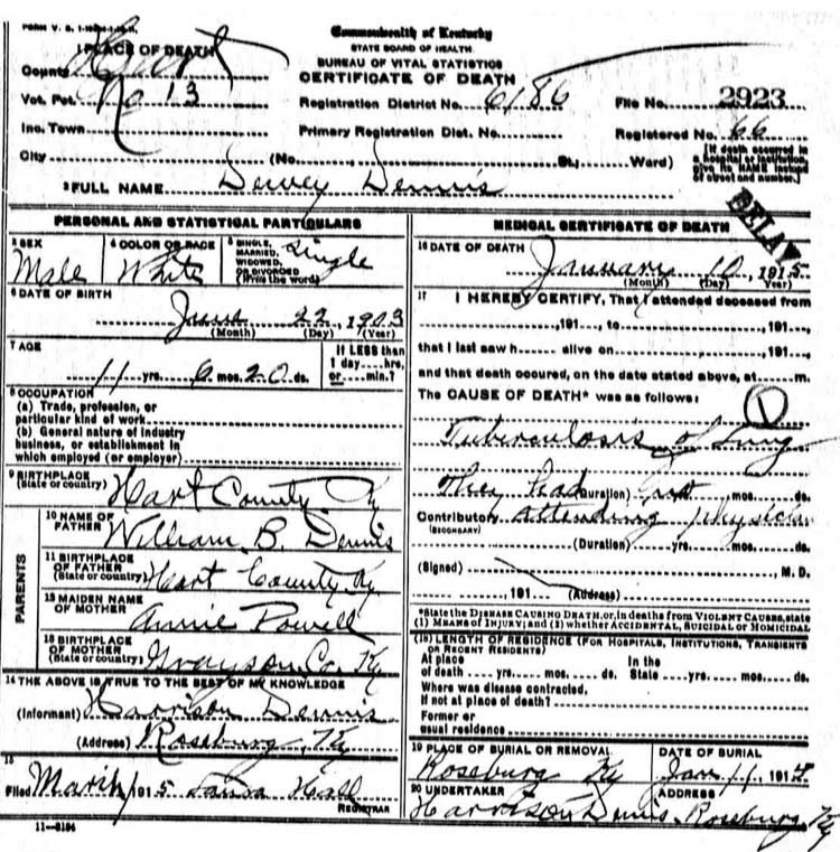 Commonwealth of Kentucky
STATE BOARD OF HEALTH
BUREAU OF VITAL STATISTICS
CERTIFICATE OF DEATH
1 PLACE OF DEATH
County Hart
Vot. Pct. No 13
Registration District No. 6186
File No. 2923
Inc. Town
Primary Registration Dist. No.
Registered No. 66
City (No. St., Ward)
[If death occurred in a hospital or institution, give its NAME instead of street and number.]
2 FULL NAME Dewey Dennis
DELAY
PERSONAL AND STATISTICAL PARTICULARS
3 SEX Male
4 COLOR OR RACE White
5 SINGLE, MARRIED, WIDOWED, OR DIVORCED (Write the word) Single
6 DATE OF BIRTH
June 22, 1903
(Month) (Day) (Year)
7 AGE
11 yrs. 6 mos. 20 ds.
If LESS than 1 day....hrs, or....min.?
8 OCCUPATION
(a) Trade, profession, or
particular kind of work
(b) General nature of industry
business, or establishment in
which employed (or employer)
9 BIRTHPLACE
(State or country) Hart County Ky
PARENTS
10 NAME OF FATHER William B. Dennis
11 BIRTHPLACE OF FATHER (State or country) Hart County Ky
12 MAIDEN NAME OF MOTHER Annie Powell
13 BIRTHPLACE OF MOTHER (State or country) Grayson Co. Ky
14 THE ABOVE IS TRUE TO THE BEST OF MY KNOWLEDGE
(Informant) Harrison Dennis
(Address) Roseburg, Ky
15
Filed March 1 1915 Hall
REGISTRAR
11—8184
MEDICAL CERTIFICATE OF DEATH
16 DATE OF DEATH
January 10, 1915
(Month) (Day) (Year)
17 I HEREBY CERTIFY, That I attended deceased from
,191 , to ,191
that I last saw h alive on ,191
and that death occured, on the date stated above, at m.
The CAUSE OF DEATH* was as follows:
1
Tuberculosis of Lung
They had (Duration) no mos. ds.
Contributory attending physician
(SECONDARY)
(Duration) yrs. mos. ds.
(Signed) M. D.
, 191 (Address)
*State the DISEASE CAUSING DEATH, or, in deaths from VIOLENT CAUSES, state
(1) MEANS OF INJURY; and (2) whether ACCIDENTAL, SUICIDAL or HOMICIDAL
(18) LENGTH OF RESIDENCE (FOR HOSPITALS, INSTITUTIONS, TRANSIENTS
OR RECENT RESIDENTS)
At place In the
of death yrs. mos. ds. State yrs. mos. ds.
Where was disease contracted,
if not at place of death?
Former or
usual residence
19 PLACE OF BURIAL OR REMOVAL
Roseburg Ky
DATE OF BURIAL
Jan 11, 1915
20 UNDERTAKER
Harrison Dennis
ADDRESS
Roseburg Ky